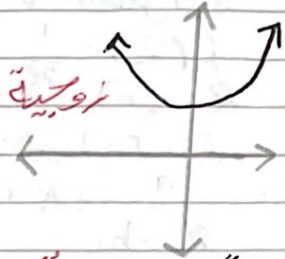 زوجية